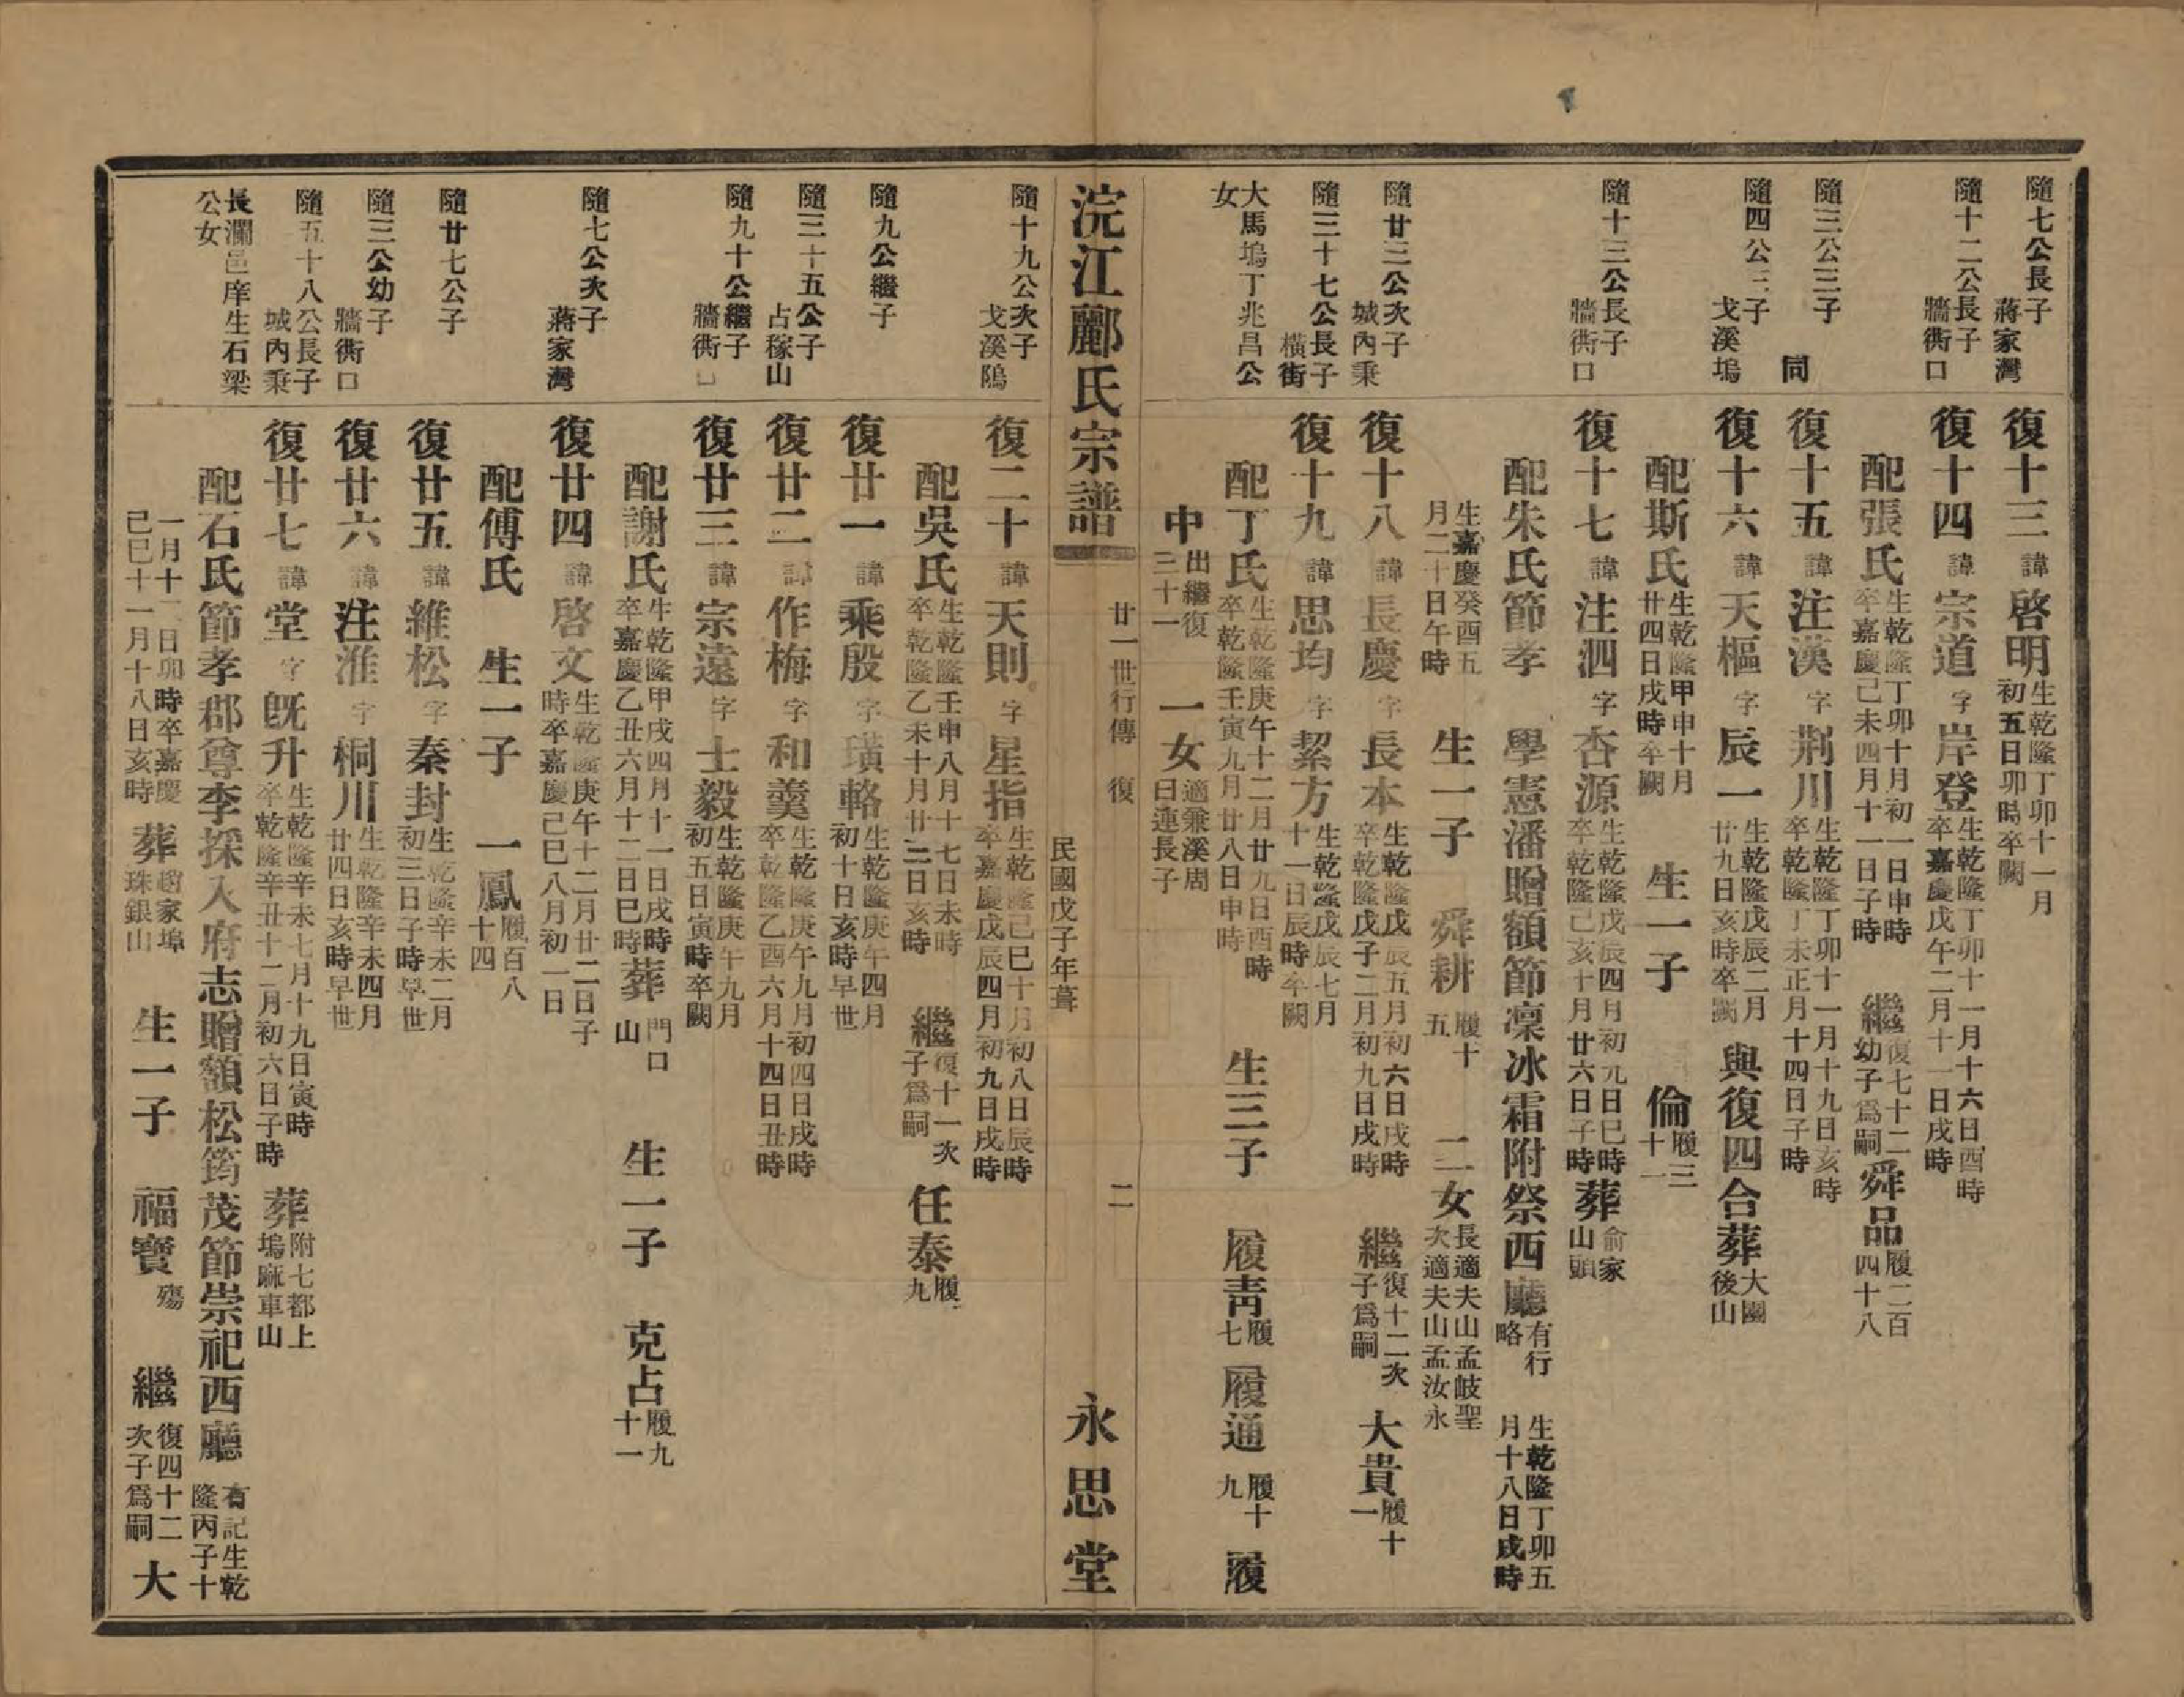 隨七公長子 蔣家灣
復十三 諱 啓明 生乾隆丁卯十一月初五日卯時卒闕
隨十二公長子 牆衖口
復十四 諱 宗道 字 岸登 生乾隆丁卯十一月十六日酉時卒嘉慶戊午二月十一日戌時
配張氏 生乾隆丁卯十月初一日申時卒嘉慶己未四月十一日子時 繼 復七十二幼子爲嗣 舜品 履二百四十八
隨三公三子 同
復十五 諱 注漢 字 荆川 生乾隆丁卯十一月十九日亥時卒乾隆丁未正月十四日子時
隨四公三子 戈溪塢
復十六 諱 天樞 字 辰一 生乾隆戊辰二月廿九日亥時卒闕 與復四合葬 大園後山
配斯氏 生乾隆甲申十月廿四日戌時卒闕 生一子 倫 履三十一
隨十三公長子 牆衖口
復十七 諱 注泗 字 杏源 生乾隆戊辰四月初九日巳時卒乾隆己亥十月廿六日子時 葬 俞家山頭
配朱氏節孝 學憲潘贈額節凜冰霜附祭西廳 有行略 生乾隆丁卯五月十八日戌時
生嘉慶癸酉五月二十日午時 生一子 舜耕 履十五 二女 長適夫山孟岐聖次適夫山孟汝永
隨廿三公次子 城內秉
復十八 諱 長慶 字 長本 生乾隆戊辰五月初六日戌時卒乾隆戊子二月初九日戌時 繼 復十二次子爲嗣 大貴 履十一
隨三十七公長子 橫街
復十九 諱 思均 字 絜方 生乾隆戊辰七月十一日辰時卒闕
大馬塢丁兆昌公女
配丁氏 生乾隆庚午十二月廿九日酉時卒乾隆壬寅九月廿八日申時 生三子 履靑 履七 履通 履十九 履
中 出繼復三十一 一女 適兼溪周曰連長子
浣江酈氏宗譜 廿一世行傳 復 民國戊子年葺 二 永思堂
隨十九公次子 戈溪隖
復二十 諱 天則 字 星指 生乾隆己巳十月初八日辰時卒嘉慶戊辰四月初九日戌時
配吳氏 生乾隆壬申八月十七日未時卒乾隆乙未十月廿三日亥時 繼 復十一次子爲嗣 任泰 履九
隨九公繼子
復廿一 諱 乘殷 字 璜輅 生乾隆庚午四月初十日亥時早世
隨三十五公子 占稼山
復廿二 諱 作梅 字 和羹 生乾隆庚午九月初四日戌時卒乾隆乙酉六月十四日丑時
隨九十公繼子 牆衖口
復廿三 諱 宗遠 字 士毅 生乾隆庚午九月初五日寅時卒闕
配謝氏 生乾隆甲戌四月十一日戌時卒嘉慶乙丑六月十二日巳時 葬 門口山 生一子 克占 履九十一
隨七公次子 蔣家灣
復廿四 諱 啓文 生乾隆庚午十二月廿二日子時卒嘉慶己巳八月初一日
配傅氏 生一子 一鳳 履百八十四
隨廿七公子
復廿五 諱 維松 字 秦封 生乾隆辛未二月初三日子時早世
隨三公幼子 牆衖口
復廿六 諱 注淮 字 桐川 生乾隆辛未四月廿四日亥時早世
隨五十八公長子 城內秉
復廿七 諱 堂 字 旣升 生乾隆辛未七月十九日寅時卒乾隆辛丑十二月初六日子時 葬 附七都上塢麻車山
長瀾邑庠生石梁公女
配石氏節孝郡尊李採入府志贈額松筠茂節崇祀西廳 有記生乾隆丙子十
一月十二日卯時卒嘉慶己巳十一月十八日亥時 葬 趙家埠珠銀山 生一子 福寶 殤 繼 復四十二次子爲嗣 大